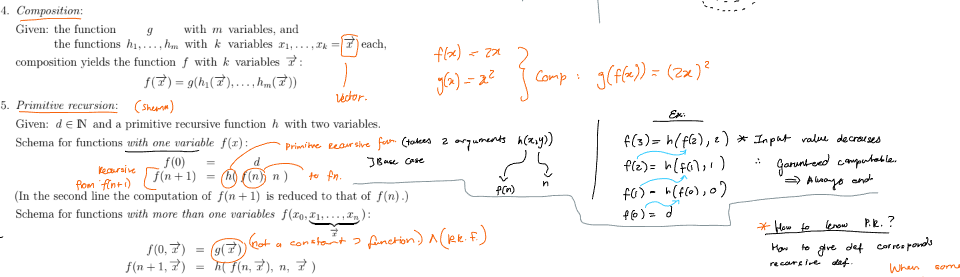 4. Composition:
Given: the function g with m variables, and
the functions h₁, . . . , hₘ with k variables x₁, . . . , xₖ = x⃗ each,
composition yields the function f with k variables x⃗ :
f(x⃗) = g(h₁(x⃗), . . . , hₘ(x⃗))
Vector.
f(x) = 2x
g(x) = x²
Comp : g(f(x)) = (2x)²
5. Primitive recursion: (Shema)
Given: d ∈ ℕ and a primitive recursive function h with two variables.
Schema for functions with one variable f(x) : Primitive Recursive fun (takes 2 arguments h(x,y))
f(n) n
f(0) = d ] Base Case
Recursive from f(n+1) f(n + 1) = h( f(n), n ) to fn.
(In the second line the computation of f(n + 1) is reduced to that of f(n) .)
Schema for functions with more than one variables f(x₀, x₁, . . . , xₙ) :
x⃗
f(0, x⃗) = g(x⃗) (not a constant > function) ∧ (p.r.f.)
f(n + 1, x⃗) = h( f(n, x⃗), n, x⃗ )
Ex.
f(3) = h(f(2), 2) * Input value decreases
f(2) = h(f(1), 1) ∴ Garunteed computable.
⇒ Always end
f(1) = h(f(0), 0)
f(0) = d
* How to know P.R.?
How to give def corresponds
recursive def.
When some